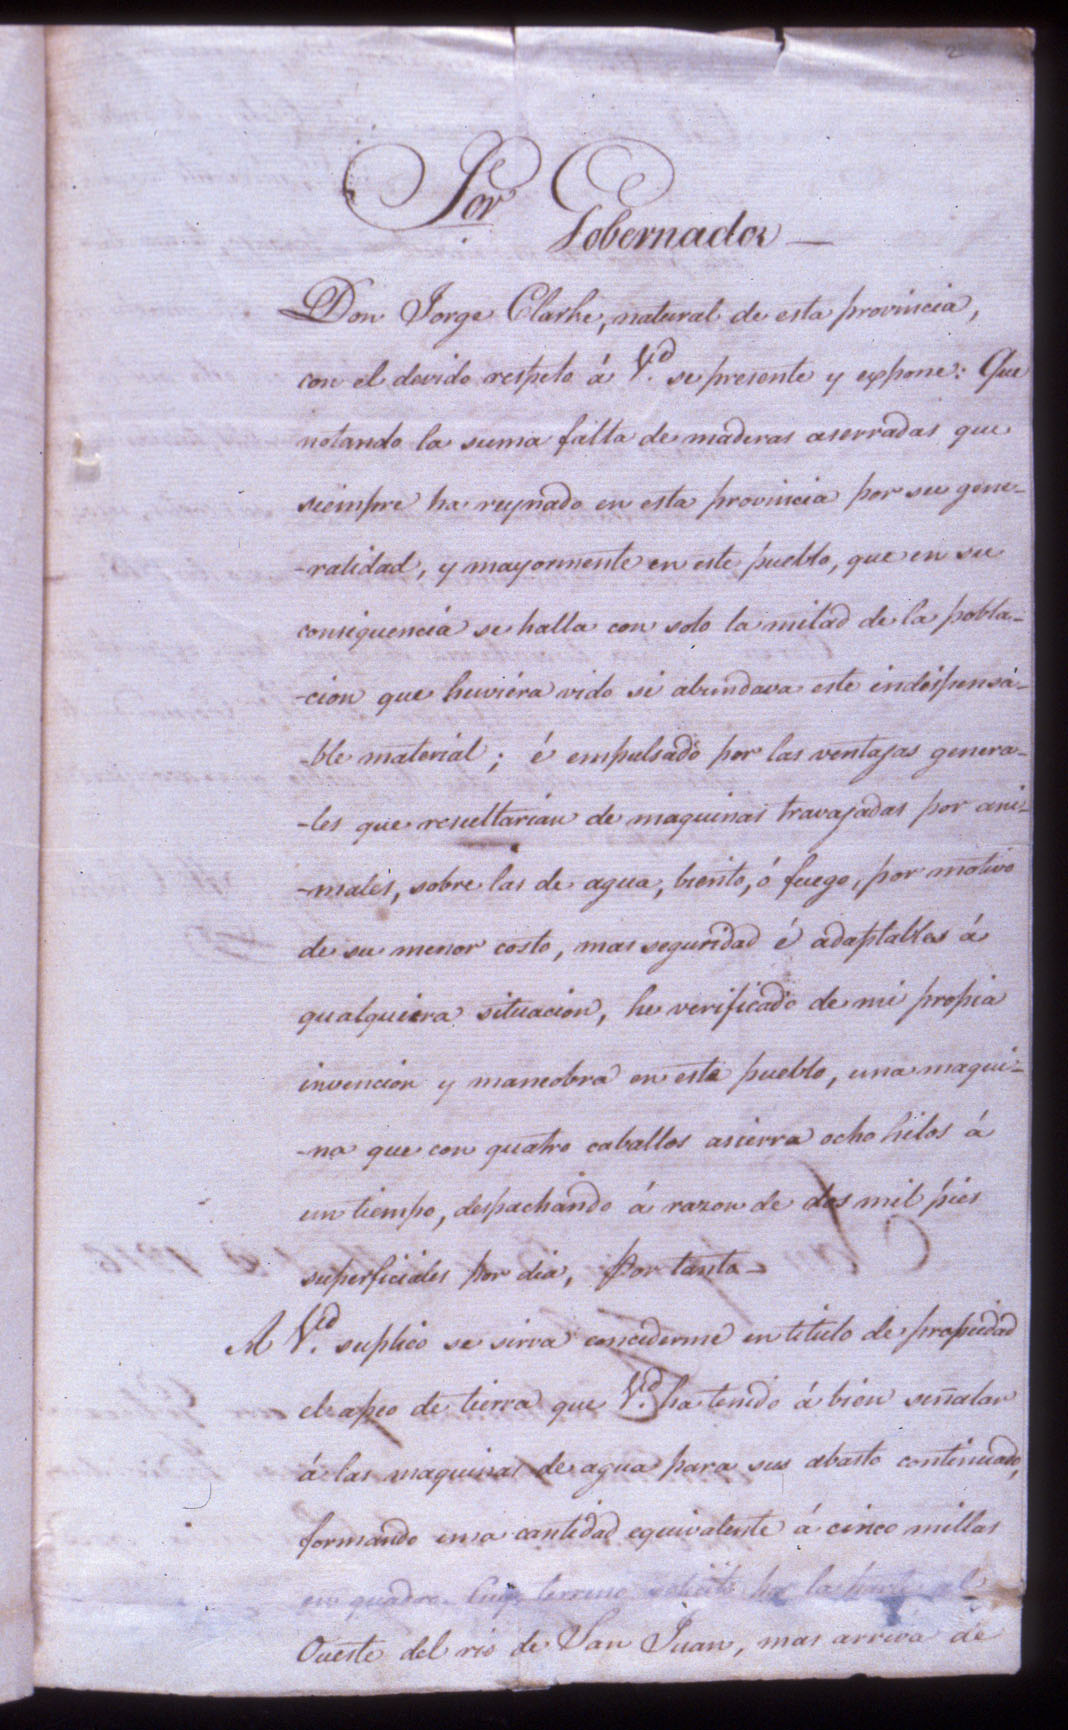 2
Sor Gobernador
Don Jorge Clarke, natural de esta provincia,
con el devido respeto á V.d se presente y expone: Que
notando la suma falta de maderas aserradas que
siempre ha reynado en esta provincia por su gene-
-ralidad, y mayormente en este pueblo, que en su
consiquencia se halla con solo la mitad de la pobla-
-cion que huviera vido si abundava este indispensá-
-ble material; é empulsado por las ventajas genera-
-les que resultarian de maquinas travajadas por ani-
-males, sobre las de agua, biento, ó fuego, por motivo
de su menor costo, mas seguridad é adaptables á
qualquiera situacion, he verificado de mi propia
invencion y maneobra en este pueblo, una maqui-
-na que con quatro caballos asierra ocho hilos á
un tiempo, despachando á razon de dos mil pies
superficiales por dia, Por tanto
A V.d suplico se sirva concederme en titulo de propiedad
el apeo de tierra que V.d ha tenido á bien señalar
á las maquinas de agua para sus abasto continuado,
formando una cantidad equivalente á cinco millas
en quadro. Cuyo terreno solicito por la parte al
Oueste del rio de San Juan, mas arriva de